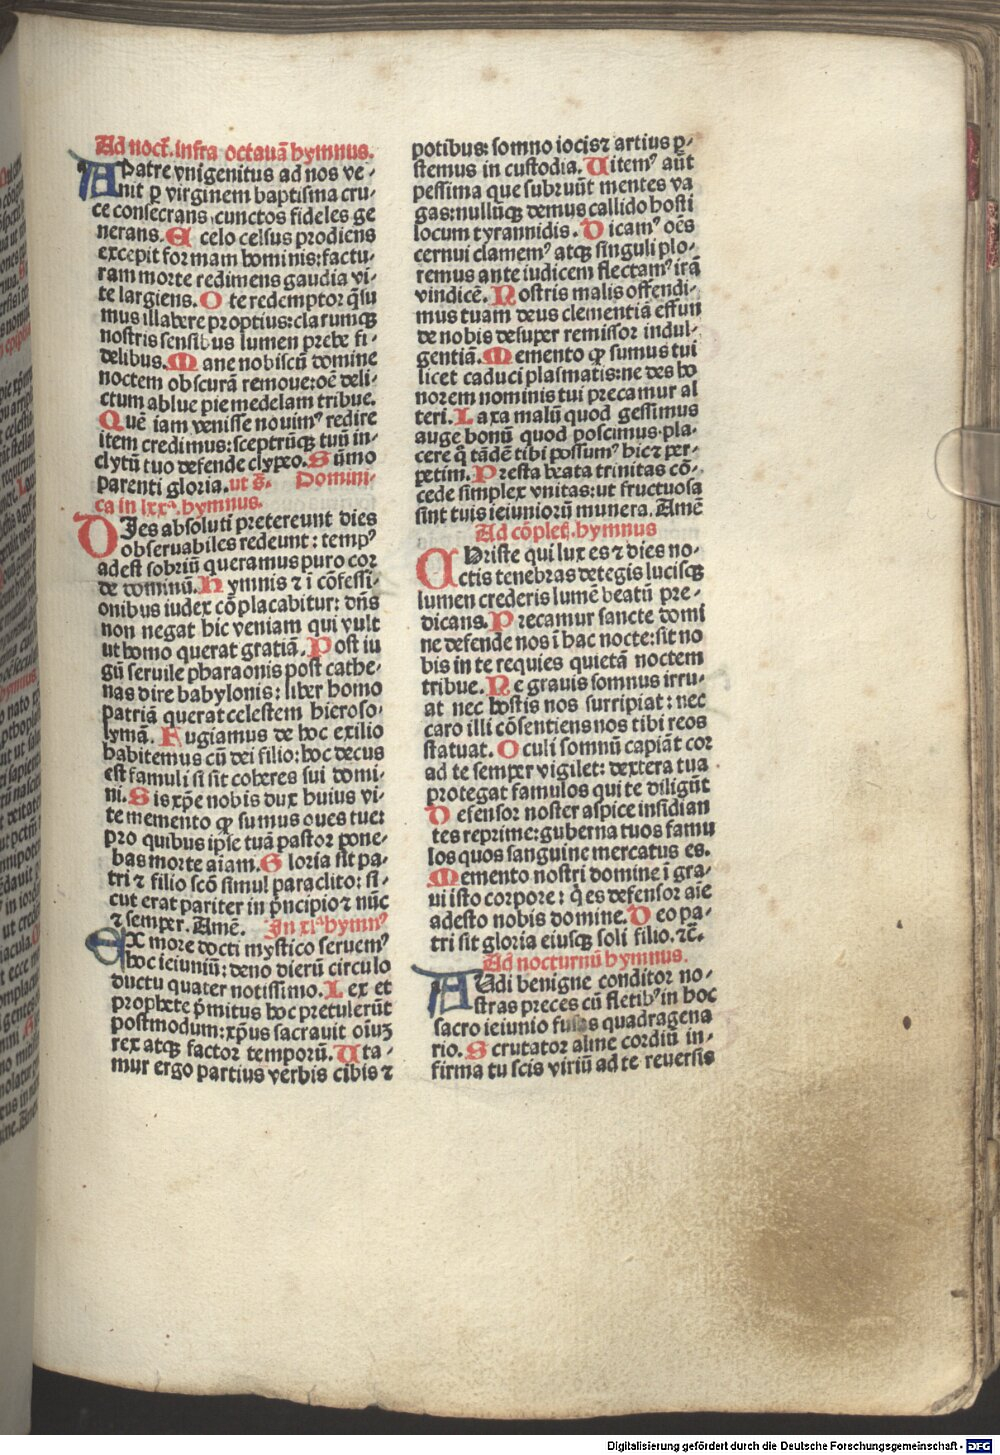 Ad noct̄. infra octauā hymnus.
A Patre vnigenitus ad nos ve-
nit ꝑ virginem baptisma cru-
ce consecrans, cunctos fideles ge
nerans. E celo celsus prodiens
excepit formam hominis: factu-
ram morte redimens gaudia vi-
te largiens. O te redemptor q̄su
mus illabere proptius: clarumqꝫ
nostris sensibus lumen prebe fi-
delibus. Mane nobiscū domine
noctem obscurā remoue: oē deli-
ctum ablue pie medelam tribue.
Quē iam venisse nouimꝰ redire
item credimus: sceptrūqꝫ tuū in-
clytū tuo defende clypeo. Sūmo
parenti gloria. ut s̄. Domini-
ca in lxxᵃ. hymnus.
DIes absoluti pretereunt dies
obseruabiles redeunt: tempꝰ
adest sobriū queramus puro cor
de dominū. Hymnis ⁊ ī cōfessi-
onibus iudex cōplacabitur: dn̄s
non negat hic veniam qui vult
ut homo querat gratiā. Post iu
gū seruile pharaonis post cathe-
nas dire babylonis: liber homo
patriā querat celestem hieroso-
lymā. Fugiamus de hoc exilio
habitemus cū dei filio: hoc decus
est famuli si sit coheres sui domi-
ni. Sis xp̄e nobis dux huius vi-
te memento ꝙ sumus oues tue:
pro quibus ipse tuā pastor pone-
bas morte aiam. Gloria sit pa-
tri ⁊ filio scō simul paraclito: si-
cut erat pariter in p̄ncipio ⁊ nūc
⁊ semper. Amē. In xlᵃ hymnꝰ
EX more docti mystico seruemꝰ
hoc ieiuniū: deno dierū circulo
ductu quater notissimo. Lex et
prophete p̄mitus hoc pretulerūt
postmodum: xp̄us sacrauit oīuꝫ
rex atqꝫ factor temporū. Uta-
mur ergo partius verbis cibis ⁊
potibus: somno iocis⁊ artius ꝑ-
stemus in custodia. Uitemꝰ aūt
pessima que subruūt mentes va
gas: nullūqꝫ demus callido hosti
locum tyrannidis. Dicamꝰ oēs
cernui clamemꝰ atqꝫ singuli plo-
remus ante iudicem flectamꝰ irā
vindicē. Nostris malis offendi-
mus tuam deus clementiā effun
de nobis desuper remissor indul-
gentiā. Memento ꝙ sumus tui
licet caduci plasmatis: ne des ho
norem nominis tui precamur al
teri. Laxa malū quod gessimus
auge bonū quod poscimus. pla-
cere q̄ tādē tibi possumꝰ hic⁊ per-
petim. Presta beata trinitas cō-
cede simplex vnitas: ut fructuosa
sint tuis ieiuniorū munera. Amē
Ad cōplet̄. hymnus
CHriste qui lux es ⁊ dies no-
ctis tenebras detegis lucisqꝫ
lumen crederis lumē beatū pre-
dicans. Precamur sancte domi
ne defende nos ī hac nocte: sit no
bis in te requies quietā noctem
tribue. Ne grauis somnus irru-
at nec hostis nos surripiat: nec
caro illi cōsentiens nos tibi reos
statuat. Oculi somnū capiāt cor
ad te semper vigilet: dextera tua
protegat famulos qui te diligūt
Defensor noster aspice insidian
tes reprime: guberna tuos famu
los quos sanguine mercatus es.
Memento nostri domine ī gra-
ui isto corpore: q̄ es defensor aīe
adesto nobis domine. Deo pa-
tri sit gloria eiusqꝫ soli filio. ⁊c̄.
Ad nocturnū hymnus.
AUdi benigne conditor no-
stras preces cū fletibꝰ in hoc
sacro ieiunio fusas quadragena
rio. Scrutator alme cordiū in-
firma tu scis viriū ad te reuersis
Digitalisierung gefördert durch die Deutsche Forschungsgemeinschaft - DFG